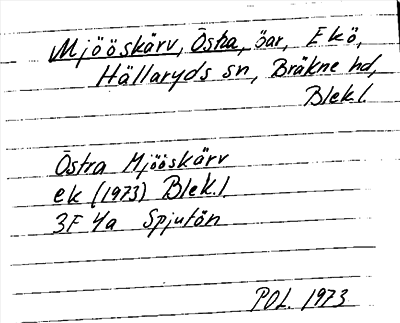 Mjööskärv, Östra, öar, Ekö,
Hällaryds sn, Bräkne hd,
Blek.l.
Östra Mjööskärv
ek (1973) Blek.l
3F 4a Spjutön
POL. 1973